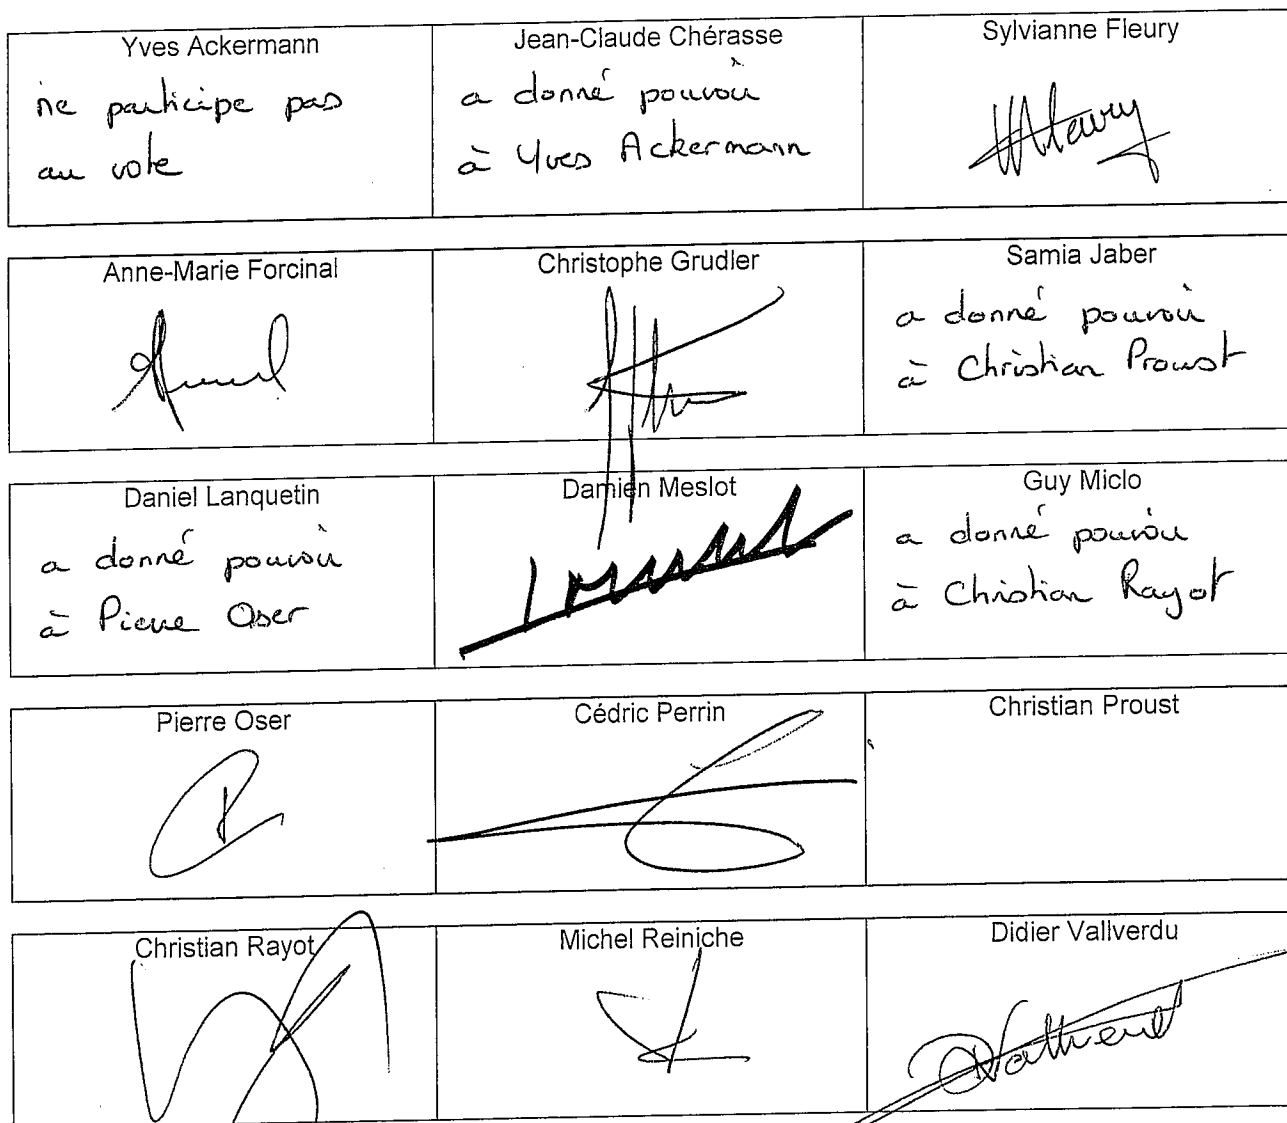 Yves Ackermann
ne participe pas
au vote
Jean-Claude Chérasse
a donné pouvoir
à Yves Ackermann
Sylvianne Fleury
Anne-Marie Forcinal
Christophe Grudler
Samia Jaber
a donné pouvoir
à Christian Proust
Daniel Lanquetin
a donné pouvoir
à Pierre Oser
Damien Meslot
Guy Miclo
a donné pouvoir
à Christian Rayot
Pierre Oser
Cédric Perrin
Christian Proust
Christian Rayot
Michel Reiniche
Didier Vallverdu